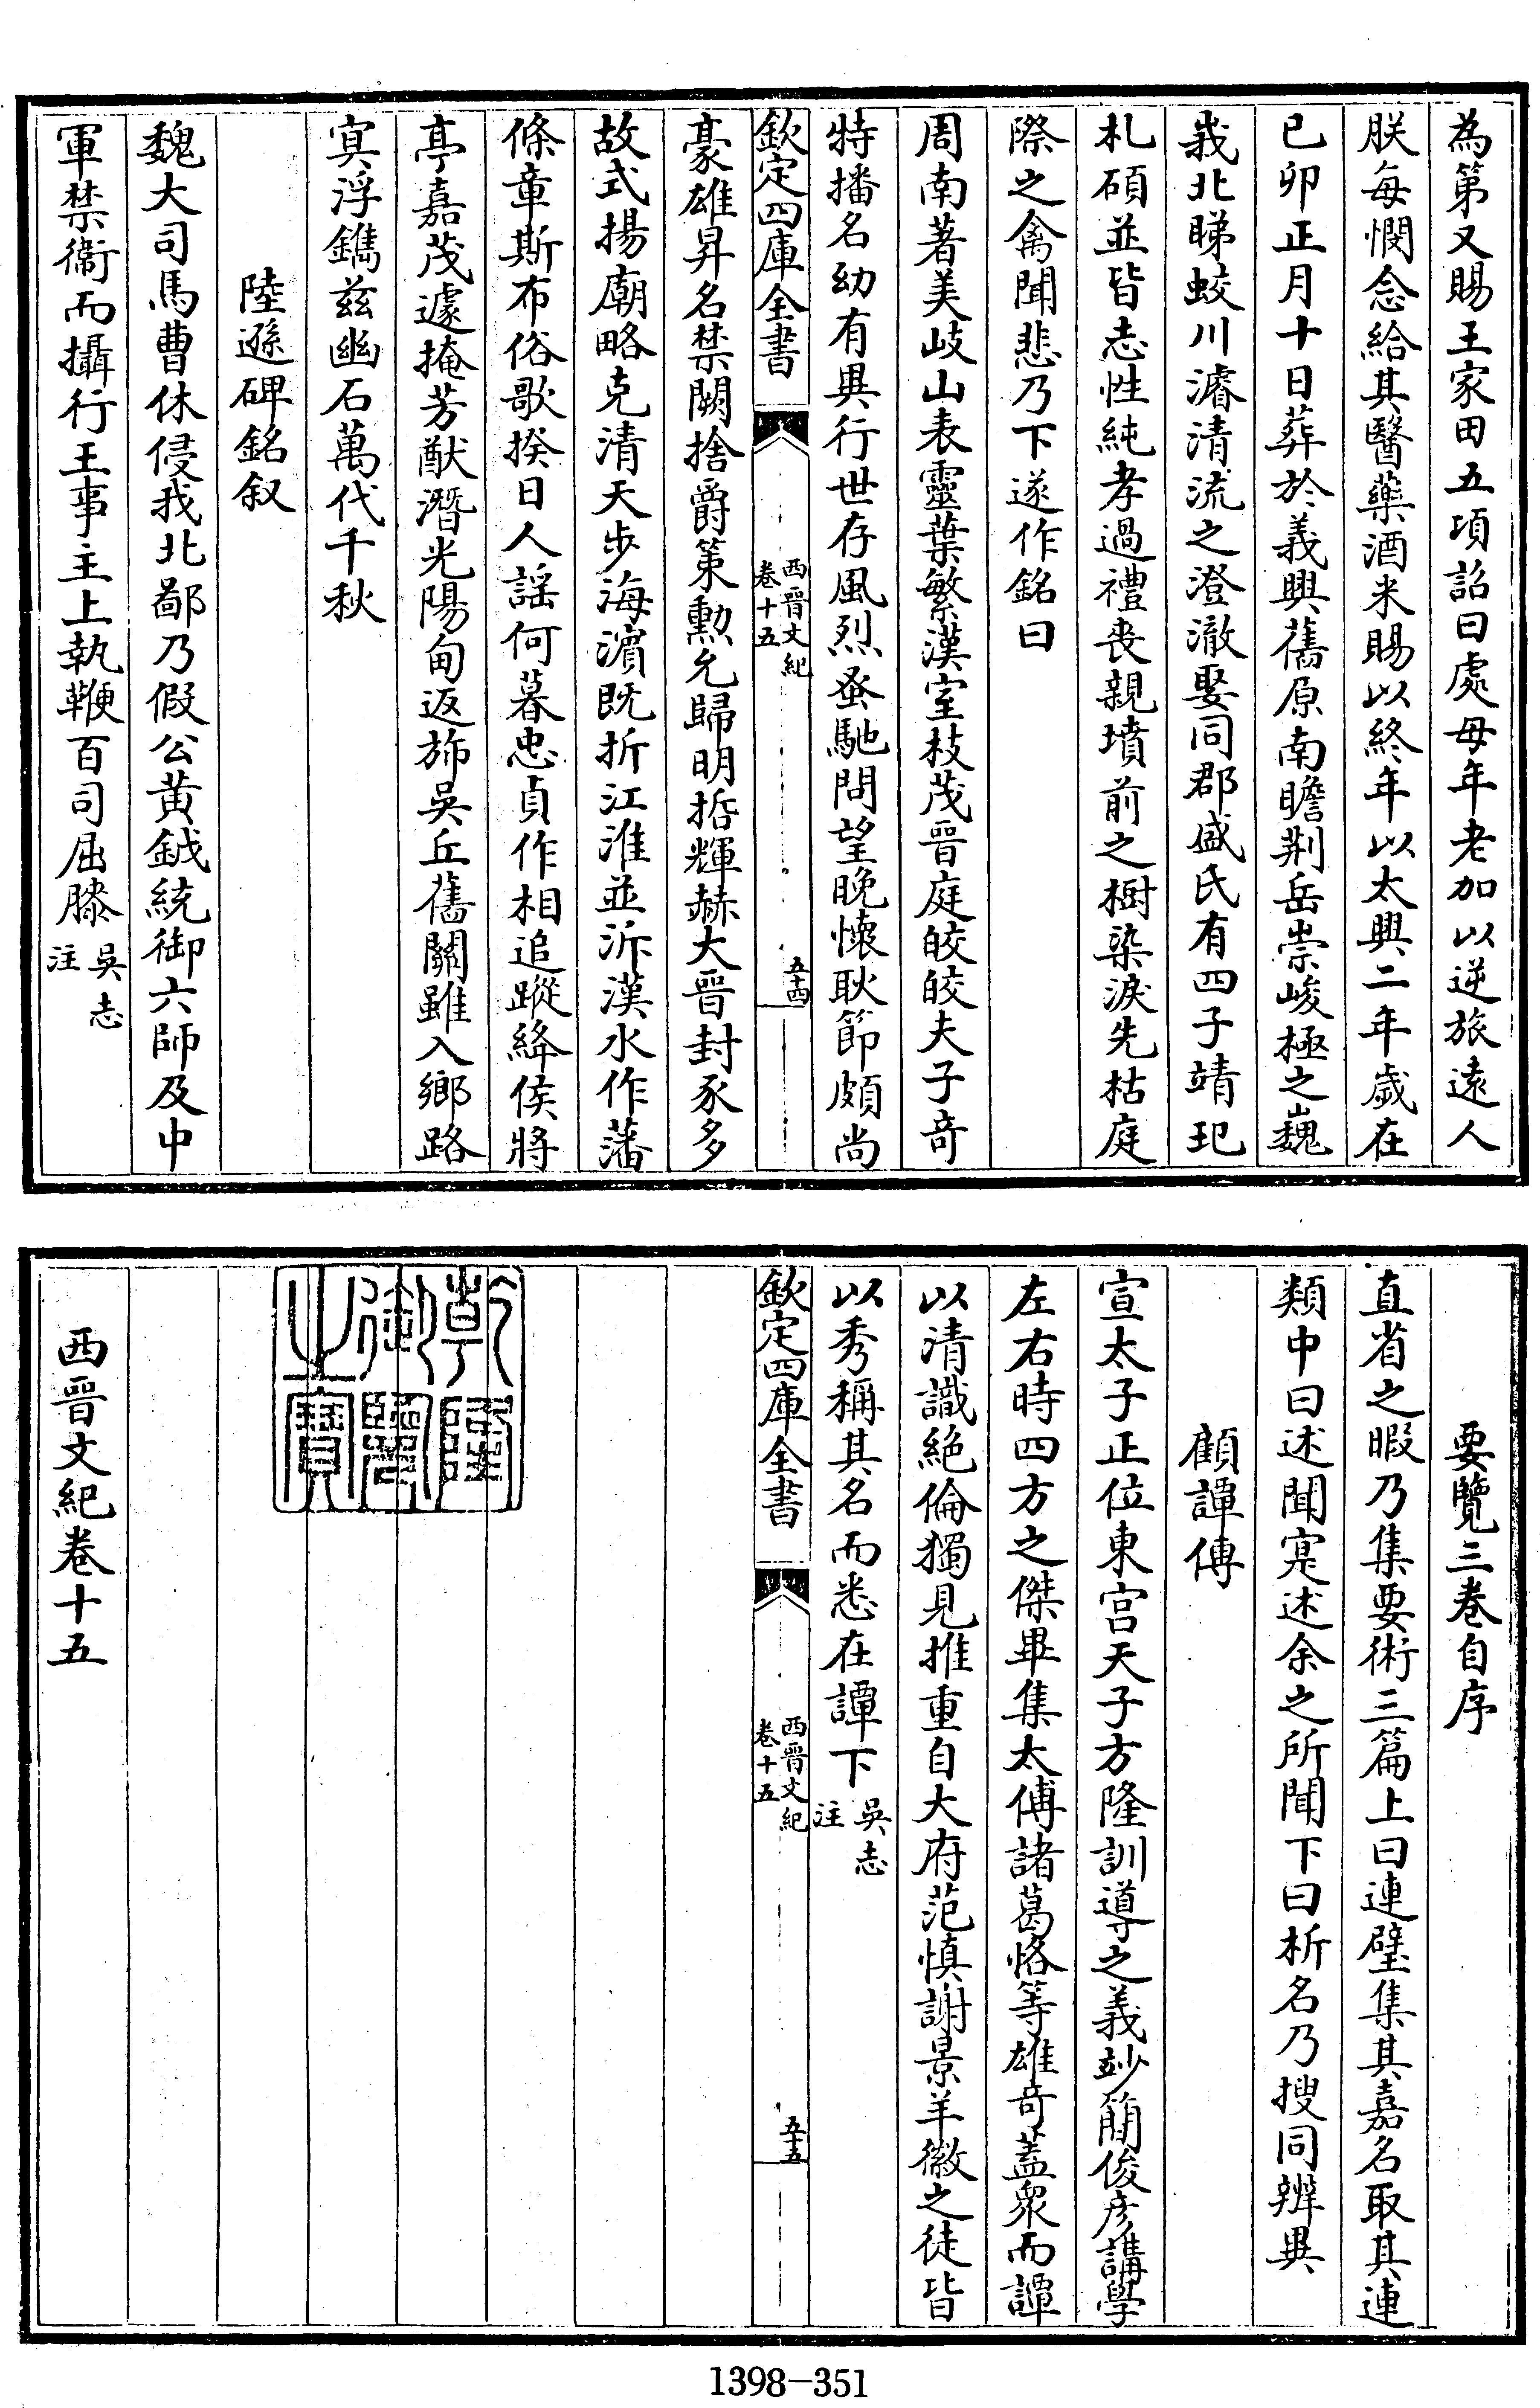 為第又賜王家田五項詔曰處母年老加以逆旅遠人
朕每憫念給其醫藥酒米賜以終年以太興二年歲在
已卯正月十日葬於義興舊原南瞻荆岳崇峻極之巍
峩北睇蛟川濬清流之澄澈娶同郡盛氏有四子靖玘
札碩並皆志性純孝過禮喪親墳前之樹染淚先枯庭
際之禽聞悲乃下遂作銘曰
周南著美岐山表靈葉繁漢室枝茂晉庭皎皎夫子奇
特播名幼有異行世存風烈蚤馳問望晚懷耿節頗尚
欽定四庫全書
西晉文紀
卷十五
五十四
豪雄昇名禁闕捨爵策勲允歸明哲輝赫大晉封豕多
故式揚廟略克清天步海濵既折江淮並泝漢水作藩
條章斯布俗歌揆日人謡何暮忠貞作相追蹤絳侯將
亭嘉茂遽掩芳猷潛光陽甸返斾吳丘舊關雖入鄉路
寘浮鐫兹幽石萬代千秋
陸遜碑銘叙
魏大司馬曹休侵我北鄙乃假公黄鉞統御六師及中
軍禁衞而攝行王事主上執鞭百司屈膝吳志
注
要覽三卷自序
直省之暇乃集要術三篇上曰連璧集其嘉名取其連
類中曰述聞寔述余之所聞下曰析名乃搜同辨異
顧譚傳
宣太子正位東宫天子方隆訓導之義妙簡俊彦講學
左右時四方之傑畢集太傅諸葛恪等雄竒葢衆而譚
以清識絶倫獨見推重自大府范慎謝景羊徽之徒皆
以秀稱其名而悉在譚下吳志
注
欽定四庫全書
西晉文紀
卷十五
五十五
乾隆御覽之寶
西晉文紀卷十五
1398-351